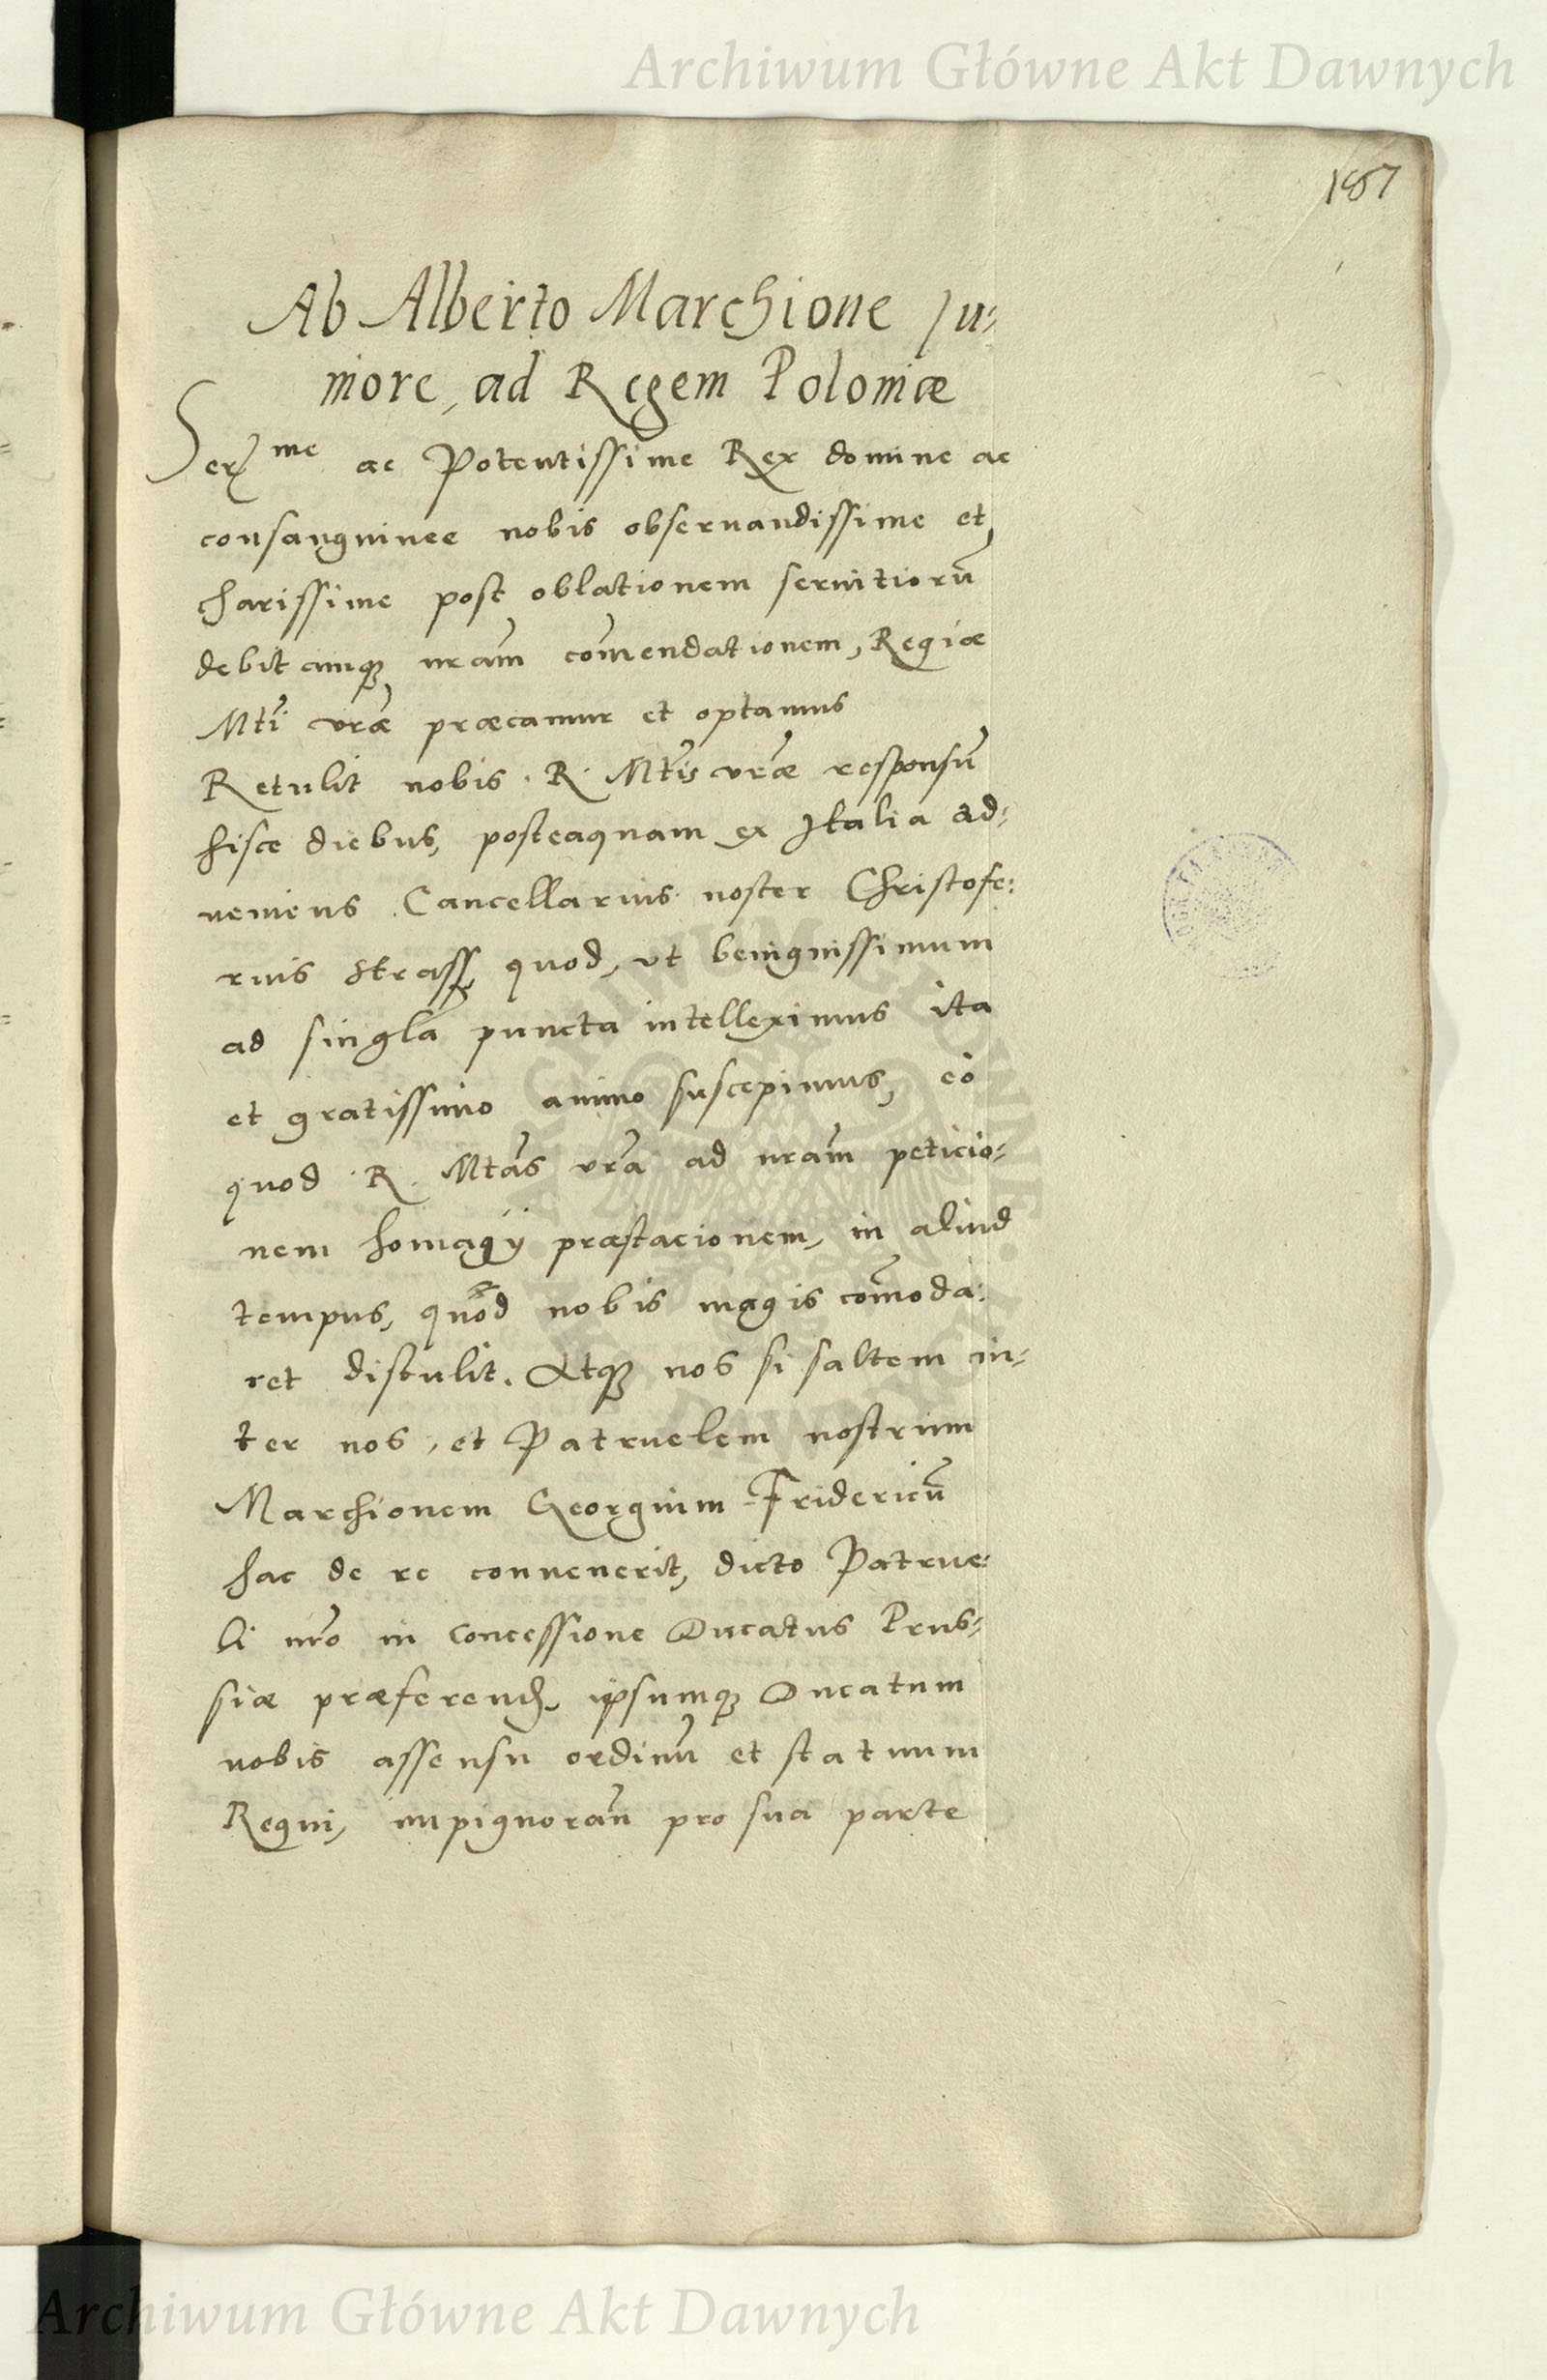 Archiwum Główne Akt Dawnych
187
Ab Alberto Marchione Ju-
niore, ad Regem Poloniæ
Ser̄me ac Potentissime Rex domine ac
consanguinee nobis obseruandissime et
charissime post oblationem seruitiorū
debitamqꝫ nram̄ com̄endationem, Regiæ
Mti̅ vrǣ præcamur et optamus
Retulit nobis R. Mtis̄ vrǣ responsū
hisce diebus, posteaquam ex Italia ad-
ueniens Cancellarius noster Christofe-
rus Strass, quod, vt benignissimum
ad singla̅ puncta intelleximus ita
et gratissimo animo suscepimus, eò
quod R. Mtas̄ vra̅ ad nram̄ peticio-
nem homagÿ præstacionem, in aliud
tempus, quod nobis magis com̄oda-
ret distulit. Atqꝫ nos si saltem in-
ter nos, et Patruelem nostrum
Marchionem Georgium Fridericū
hac de re conuenerit, dicto Patrue-
li nro̅ in concessione Ducatus Prus-
siæ præferend. ipsumqꝫ Ducatum
nobis assensu ordinū et statuum
Regni, impignoran̄ pro sua parte
Archiwum Główne Akt Dawnych